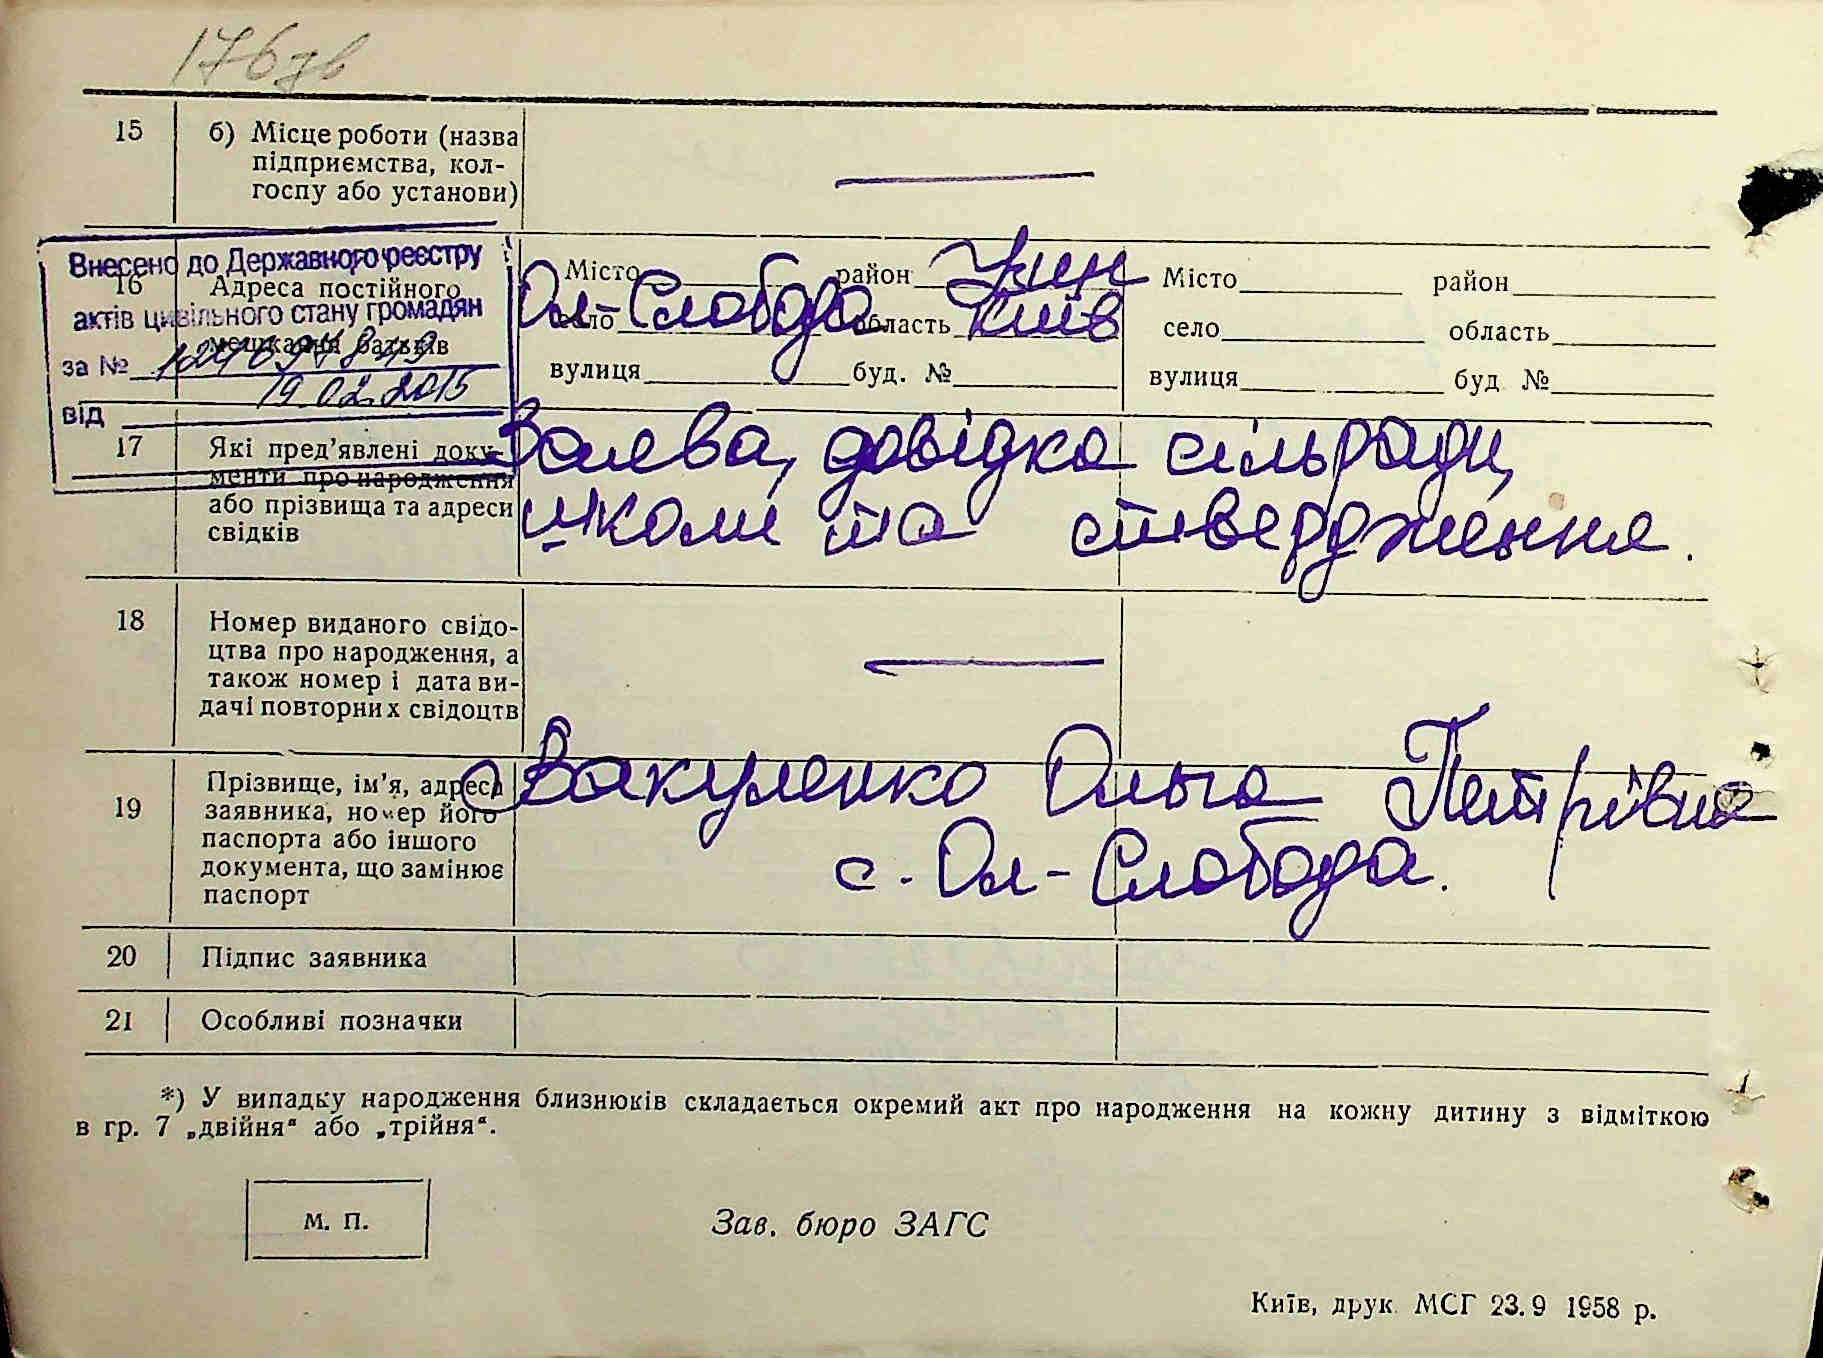 176 зв
15 б) Місце роботи (назва
підприємства, кол-
госпу або установи)
Внесено до Державного реєстру
актів цивільного стану громадян
за №
19.02.2015
від
16 Адреса постійного
мешкання батьків
Місто район Узин Місто район
село Ол-Слобода область Київ село область
вулиця буд. № вулиця буд №
17 Які пред'явлені доку-
менти про народження
або прізвища та адреси
свідків
Заява, довідка сільради,
школи та ствердження.
18 Номер виданого свідо-
цтва про народження, а
також номер і дата ви-
дачі повторних свідоцтв
19 Прізвище, ім'я, адреса
заявника, номер його
паспорта або іншого
документа, що замінює
паспорт
Вакуленко Ольга Петрівна
с. Ол-Слобода.
20 Підпис заявника
21 Особливі позначки
*) У випадку народження близнюків складається окремий акт про народження на кожну дитину з відміткою
в гр. 7 „двійня" або „трійня".
М. П.
Зав. бюро ЗАГС
Київ, друк. МСГ 23.9 1958 р.